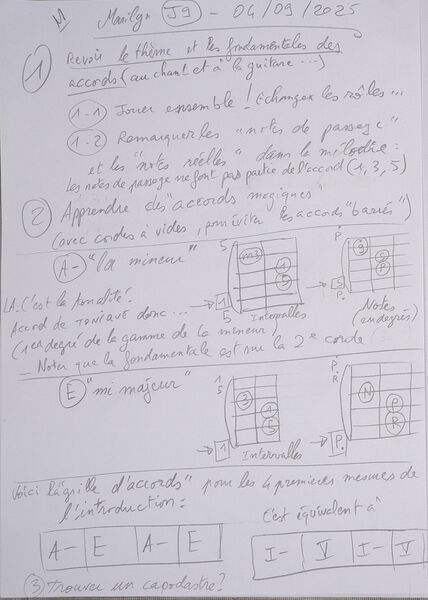 M Marilyn J9 - 04/09/2025
1 Revoir le thème et les fondamentales des
accords (au chant et à la guitare...)
1-1 Jouer ensemble ! Echanger les rôles...
1-2 Remarquer les "notes de passage"
et les "notes réelles" dans la mélodie :
Les notes de passage ne font pas partie de l'accord (1, 3, 5)
2 Apprendre des "accords magiques"
(avec cordes à vides, pour éviter les accords "barrés")
A- "la mineur"
5 m3 1 5
1
5
Intervalles
P. S P
S
P.
Notes
(en degrés)
LA: C'est la tonalité.
Accord de TONIQUE donc...
(1er degré de la gamme de la mineur)
- Noter que la fondamentale est sur la 2e corde
E "mi majeur"
1
5
3 1 5
1
Intervalles
P.
R
N P R
P.
Voici la "grille d'accords" pour les 4 premières mesures de
l'introduction :
C'est équivalent à
A- E A- E
I- V I- V
3 Trouver un capodastre ?